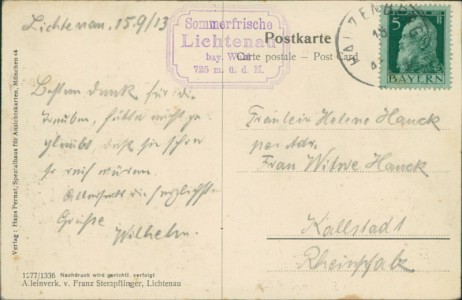 Lichtenau. 15.9/13
Sommerfrische
Lichtenau
bay. Wald
725 m. ü. d. M.
Postkarte
Carte postale — Post Card
5
BAYERN
Besten Dank für die
Trauben, hätte nicht ge
glaubt, daß sie schon
so reif wären.
Allerseits die herzlichsten
Grüße
Wilhelm.
Fräulein Helene Hauck
per Adr.
Frau Witwe Hauck
Kallstadt
Rheinpfalz
Verlag: Hans Pernat, Spezialhaus für Ansichtskarten, München
1277/1336 Nachdruck wird gerichtl. verfolgt
Alleinverk. v. Franz Sterzpflinger, Lichtenau